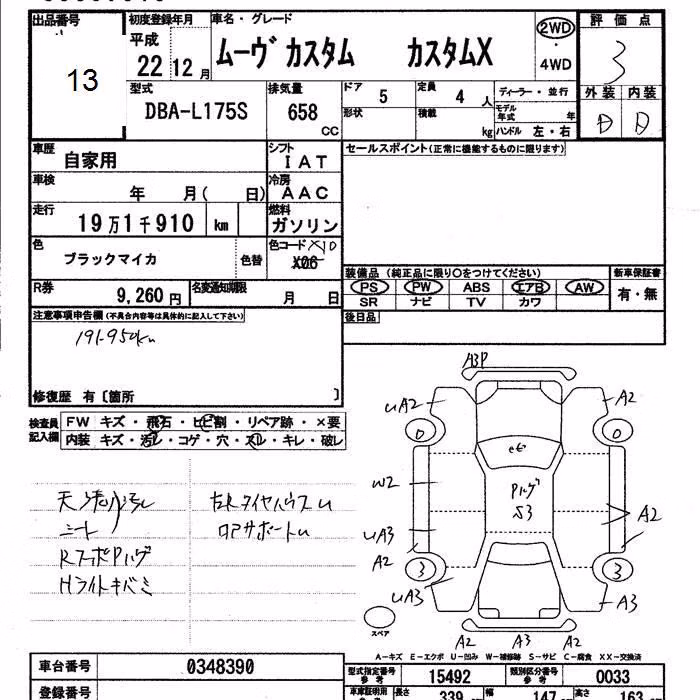 出品番号
13
初度登録年月
平成
22 12 月
車名・グレード
ムーヴ カスタム カスタムX
2WD
・
4WD
評価点
3
外装 内装
D D
型式
DBA-L175S
排気量
658
CC
ドア 5
定員 4 人
形状
積載 kg
ディーラー・並行
モデル年式 年
ハンドル 左・右
車歴
自家用
シフト
IAT
車検
年 月( 日)
冷房
AAC
走行
19万1千910 km
燃料
ガソリン
色
ブラックマイカ
色替
色コード X10
X06
R券
9,260 円
名変通知期限
月 日
セールスポイント(正常に機能するものに限ります)
装備品 (純正品に限り○をつけてください)
新車保証書
PS PW ABS エアB AW
SR ナビ TV カワ
有・無
後日品
注意事項申告欄(不具合内容等は具体的に記入して下さい)
191-950km
修復歴 有〔箇所 〕
検査員
記入欄
FW キズ・飛石・ヒビ割・リペア跡・×要
内装 キズ・汚レ・コゲ・穴・スレ・キレ・破レ
シート
Hライトキバミ
A3P
uA2
A2
0
0
W2
S3
A2
uA3
A2
3
3
uA3
A3
スペア
A2 A3 A2
A-キズ E-エクボ U-凹み W-補修跡 S-サビ C-腐食 XX-交換済
車台番号
0348390
登録番号
型式指定番号
参考
15492
類別区分番号
参考
0033
車庫証明用
長さ 339
幅 147
高さ 163